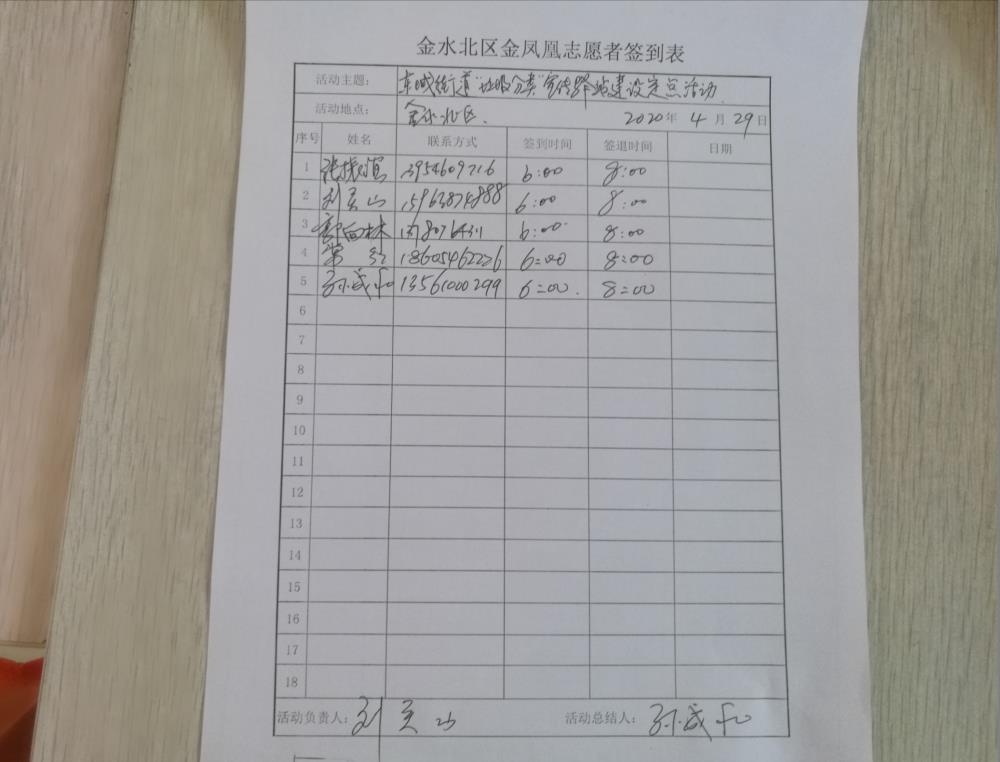 金水北区金凤凰志愿者签到表
活动主题: 东城街道"垃圾分类"宣传驿站建设定点活动
活动地点: 金水北区. 2020年 4 月 29 日
序号 姓名 联系方式 签到时间 签退时间 日期
1 张振 13954609716 6:00 8:00
2 刘灵山 15963874888 6:00 8:00
3 郭向林 6:00 8:00
4 常红 18605462226 6:00 8:00
5 孙成和 13561000299 6:00. 8:00
6
7
8
9
10
11
12
13
14
15
16
17
18
活动负责人: 刘灵山 活动总结人: 孙成和